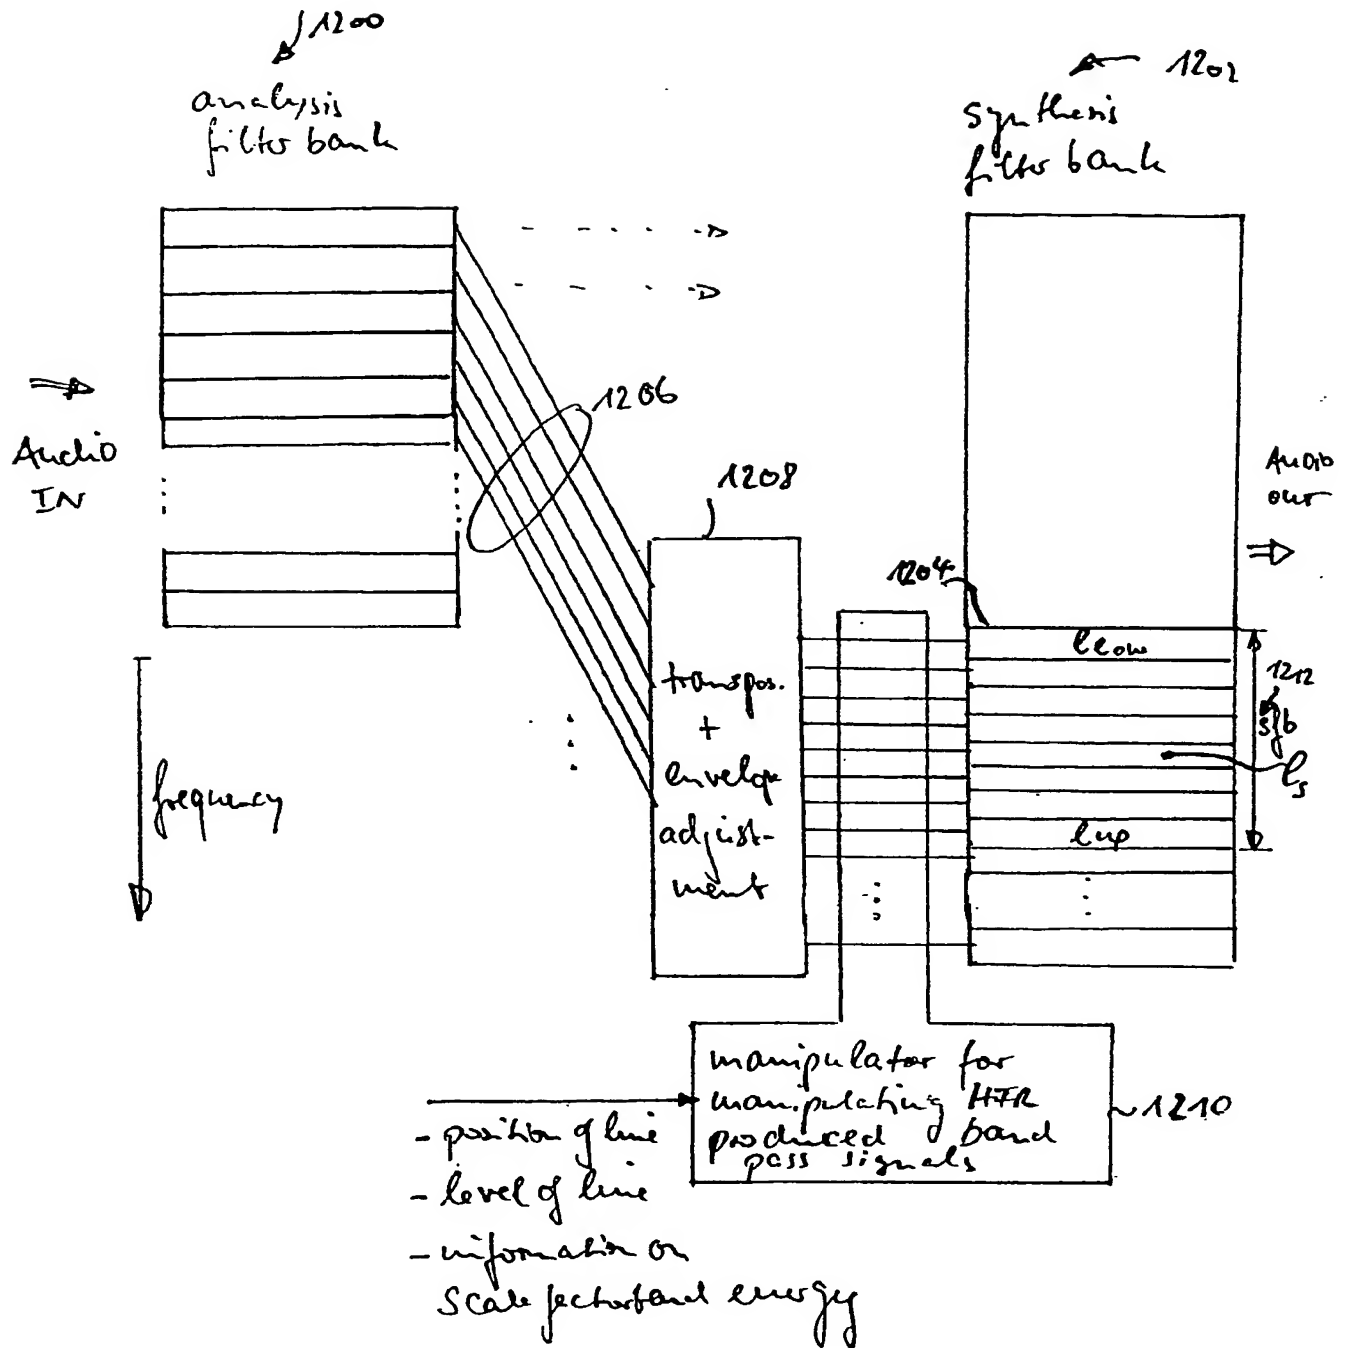 1200
analysis
filter bank
1202
synthesis
filter bank
Audio
IN
1206
1208
Audio
out
1204
llow
1212
sfb
ls
lup
transpos.
+
envelope
adjust-
ment
frequency
manipulator for
manipulating HFR
produced band
pass signals
1210
- position of line
- level of line
- information on
scale factorband energy